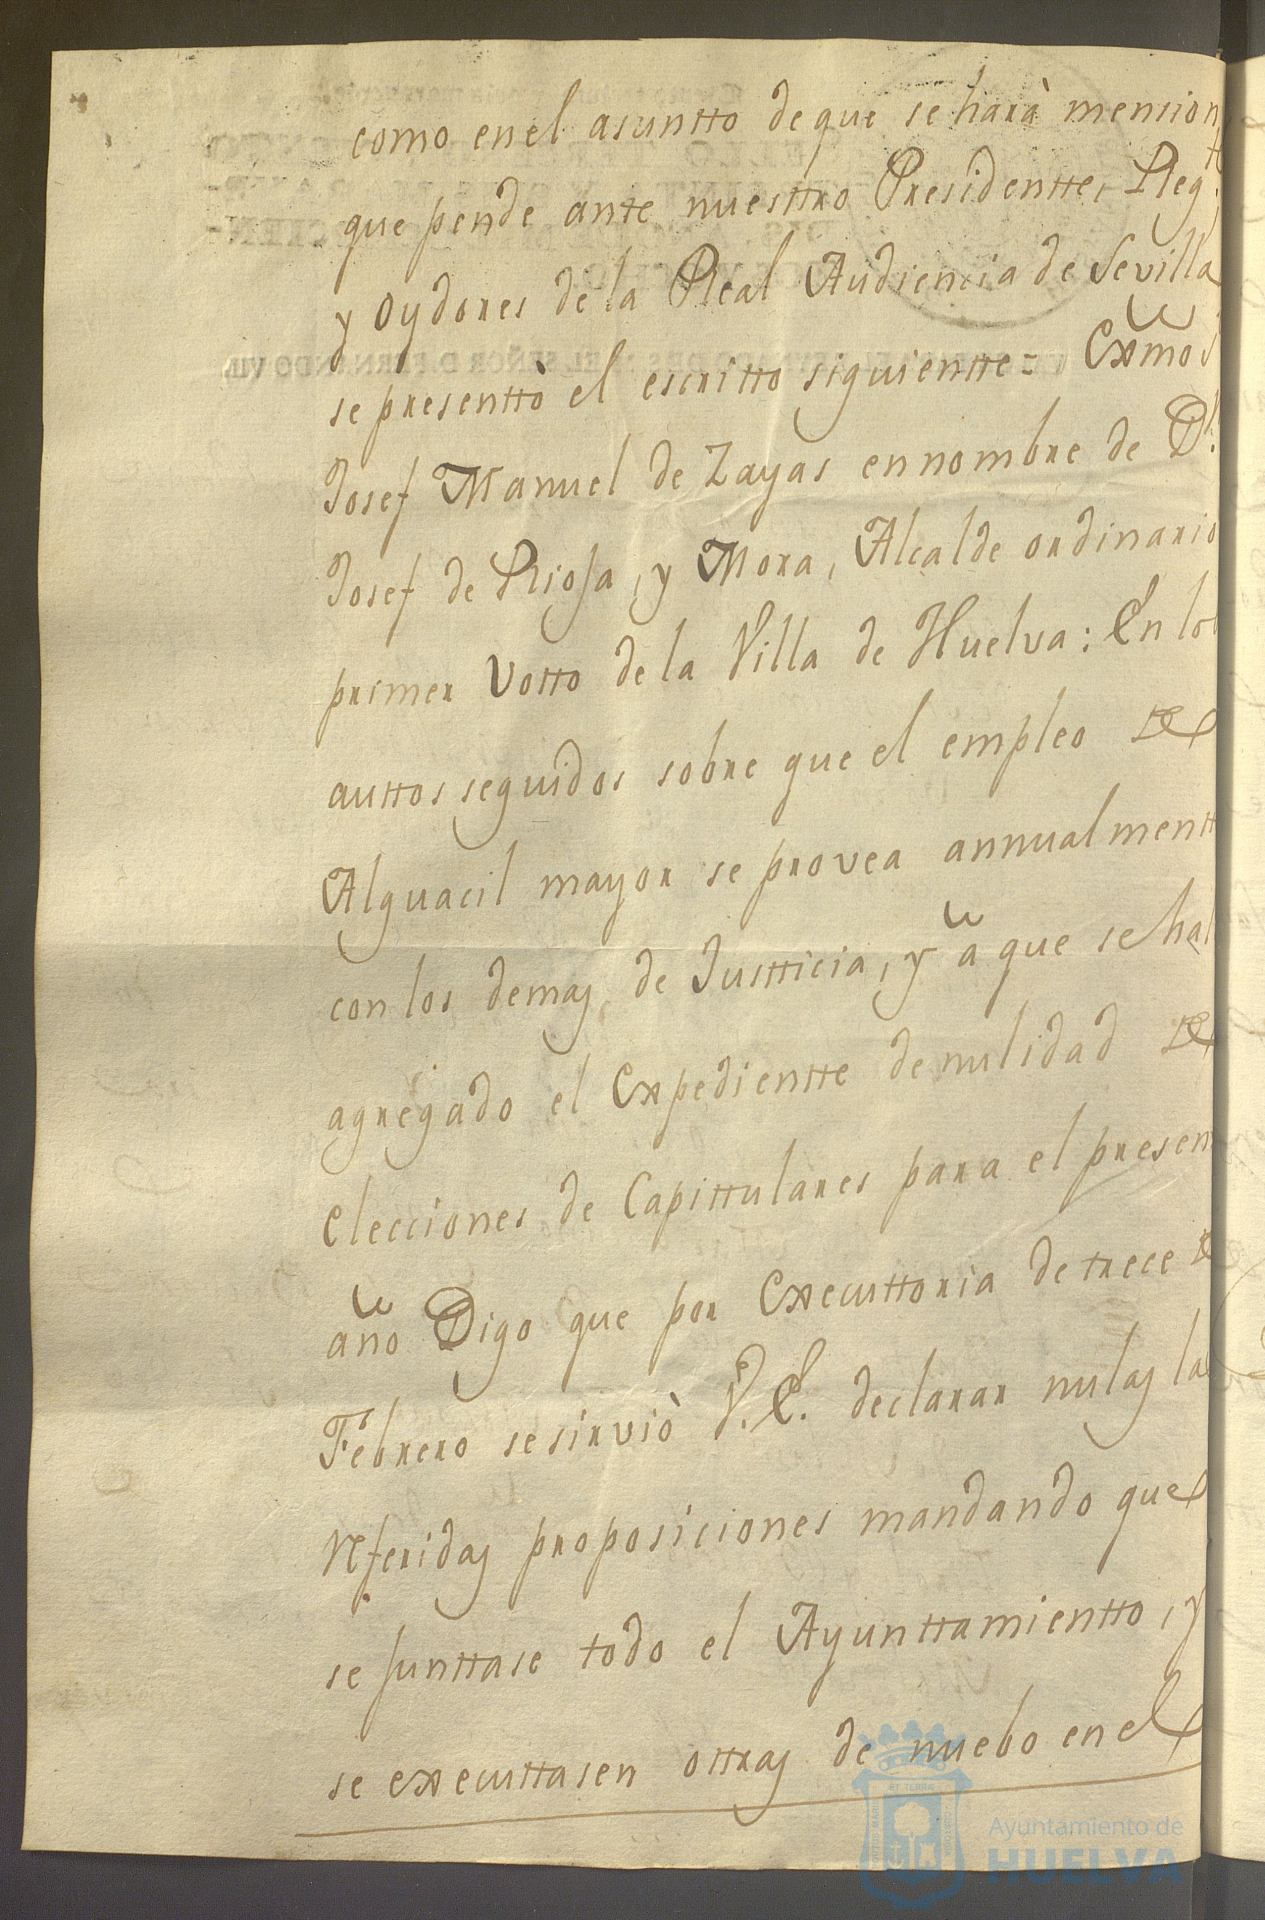 como en el asuntto de que se harà mension
que pende ante nuesttro Presidentte, Reg.te
y Oydores de la Real Audiencia de Sevilla
se presenttò el escritto siguientte = Exmo S
Josef Manuel de Zayas en nombre de D.n
Josef de Rioja, y Mora, Alcalde ordinario
primer Votto de la Villa de Huelva: En los
auttos seguidos sobre que el empleo de
Alguacil mayor se provea annualmentt
con los demas de Justticia, y â que se hal
agregado el Expedientte de nulidad de
elecciones de Capittulares para el presen
año Digo que por Executtoria de trece de
Febrero se sirviò V. E. declarar nulas las
referidas proposiciones mandando que
se junttase todo el Ayunttamientto, y
se executtasen ottras de nuebo en el
Ayuntamiento de
HUELVA